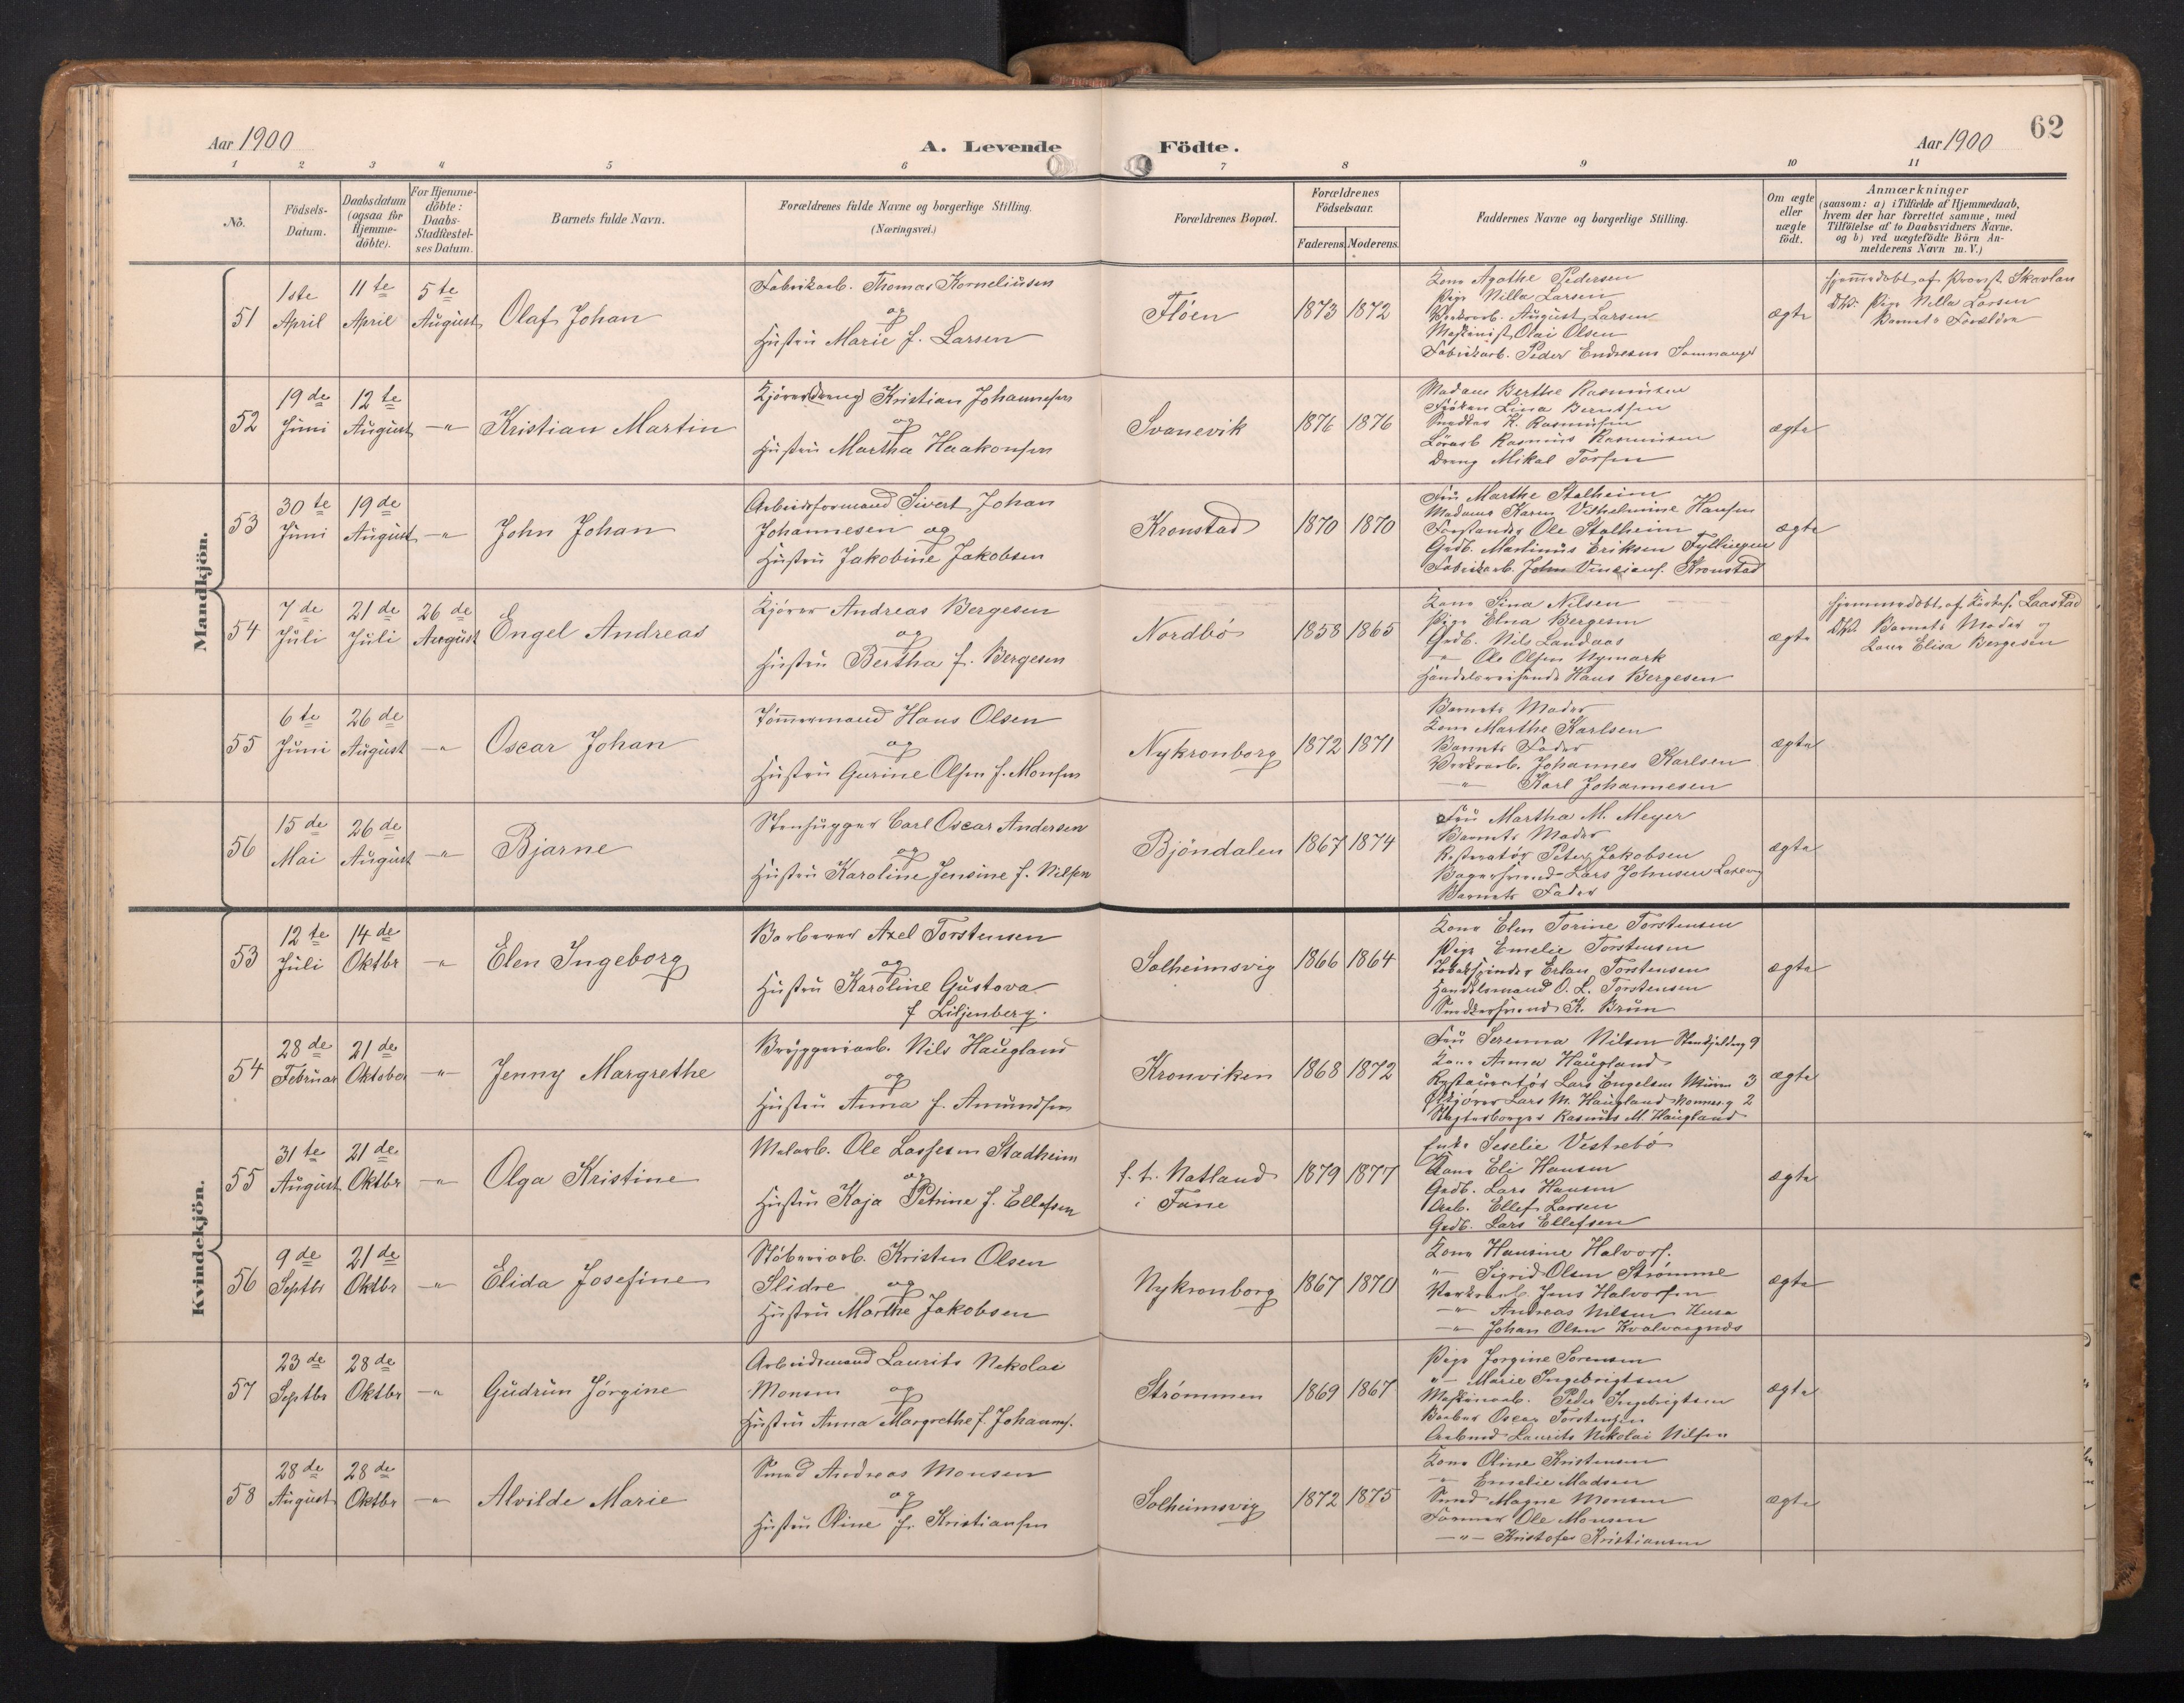 62
Aar 1900
A. Levende Födte.
Aar 1900
1 2 3 4 5 6 7 8 9 10 11
No.
Födsels-
Datum.
Daabsdatum
(ogsaa for
Hjemme-
döbte).
For Hjemme-
döbte:
Daabs-
Stadfæstel-
ses Datum.
Barnets fulde Navn.
Forældrenes fulde Navne og borgerlige Stilling.
(Næringsvei.)
Forældrenes Bopæl.
Forældrenes
Födselsaar.
Faderens. Moderens.
Faddernes Navne og borgerlige Stilling.
Om ægte
eller
uægte
födt.
Anmærkninger
(saasom: a) i Tilfælde af Hjemmedaab,
hvem der har forrettet samme, med
Tilföielse af to Daabsvidners Navne.
og b) ved uægtefödte Börn An-
melderens Navn m. V.)
Mandkjön.
51
1ste
April
11te
April
5te
August
Olaf Johan
Fabrikarb. Thomas Korneliusen
og
Hustru Marie f. Larsen
Fløen
1873 1872
Kone Agathe Pedersen
Pige Nilla Larsen
August Larsen
Maskinist Olai Olsen
Fabrikarb. Peder Endresen Samnanger
ægte
Hjemmedøbt af Provst Skavlan
Dbv. Pige Nilla Larsen
Barnets Forældre
52
19de
Juni
12te
August
-"-
Kristian Martin
Kjører(dreng) Kristian Johannesen
og
Hustru Martha Haakonsen
Svanevik
1876 1876
Madam Berthe Rasmussen
Frøken Lina Berntsen
K. Rasmussen
Rasmus Rasmussen
Dreng Mikal Torsen
ægte
53
30te
Juni
19de
August
-"-
John Johan
Arbeidsformand Sivert Johan
Johannesen og
Hustru Jakobine Jakobsen
Kronstad
1870 1870
Fru Marthe Stalheim
Madame Karen Vilhelmine Hansen
Forstander Ole Stalheim
Grdb. Martinus Eriksen
Fabrikarb. John Kronstad
ægte
54
7de
Juli
21de
Juli
26de
August
Engel Andreas
Kjører Andreas Bergesen
og
Hustru Bertha f. Bergesen
Nordbø
1858 1865
Kone Sina Nilsen
Pige Elna Bergesen
Grdb. Nils Landaas
-"- Ole Olsen Nymark
Handelsreisende Hans Bergesen
ægte
Hjemmedøbt af Laastad
Dbv. Barnets Moder og
Kone Elisa Bergesen
55
6te
Juni
26de
August
-"-
Oscar Johan
Tømmermand Hans Olsen
og
Hustru Gurine Olsen f. Monsen
Nykronborg
1872 1871
Barnets Moder
Kone Marthe Karlsen
Barnets Fader
Johannes Karlsen
-"- Karl Johannesen
ægte
56
15de
Mai
26de
August
-"-
Bjarne
Stenhugger Carl Oscar Andersen
og
Hustru Karoline Jensine f. Nilsen
Bjöndalen
1867 1874
Fru Martha M. Meyer
Barnets Moder
Peter Jakobsen
Bagersvend Lars Johnsen Laxevaag
Barnets Fader
ægte
Kvindekjön.
53
12te
Juli
14de
Oktbr
-"-
Elen Ingeborg
Barberer Axel Torstensen
og
Hustru Karoline Gustova
f Liljenberg.
Solheimsvig
1866 1864
Kone Elen Torine Torstensen
Pige Emelie Torstensen
Tobakspinder Erlan Torstensen
Handelsmand O. L. Torstensen
Snedkersvend K. Brun
ægte
54
28de
Februar
21de
Oktober
-"-
Jenny Margrethe
Bryggeriarb. Nils Haugland
og
Hustru Anna f. Amundsen
Kronviken
1868 1872
Fru Serenna Nilsen 9
Kone Anna Haugland
Restauratør Lars Engelsen 3
Ølkjører Lars M. Haugland 2
Rasmus M. Haugland
ægte
55
31te
August
21de
Oktbr
-"-
Olga Kristine
Malarb. Ole Lassesen Stadheim
og
Hustru Kaja Petrine f. Ellefsen
f. t. Natland
i Fane
1879 1877
Enke Seselie Vestrebø
Kone Eli Hansen
Grdb. Lars Hansen
Arb. Ellef Larsen
Grdb. Lars Ellefsen
ægte
56
9de
Septbr
21de
Oktbr
-"-
Elida Josefine
Støberiarb. Kristen Olsen
Slidre og
Hustru Marthe Jakobsen
Nykronborg
1867 1870
Kone Hansine Halvors.
-"- Sigrid Olsen Strømme
Jens Halvorsen
-"- Andreas Nilsen Husa
-"- Johan Olsen Kvalvaagnes
ægte
57
23de
Septbr
28de
Oktbr
-"-
Gudrun Jørgine
Arbeidsmand Laurits Nekolai
Monsen og
Hustru Anna Margrethe f. Johannes.
Strømmen
1869 1867
Pige Jorgine Sorensen
-"- Marie Ingebrigtsen
Maskinarb. Peder Ingebrigtsen
Barber Oscar Torstensen
Arbmd Laurits Nikolai Nilsen
ægte
58
28de
August
28de
Oktbr
-"-
Alvilde Marie
Smed Andreas Monsen
og
Hustru Oline f. Kristiansen
Solheimsvig
1872 1875
Kone Oline Kristensen
-"- Emelie Madsen
Smed Magne Monsen
Former Ole Monsen
-"- Kristofer Kristiansen
ægte